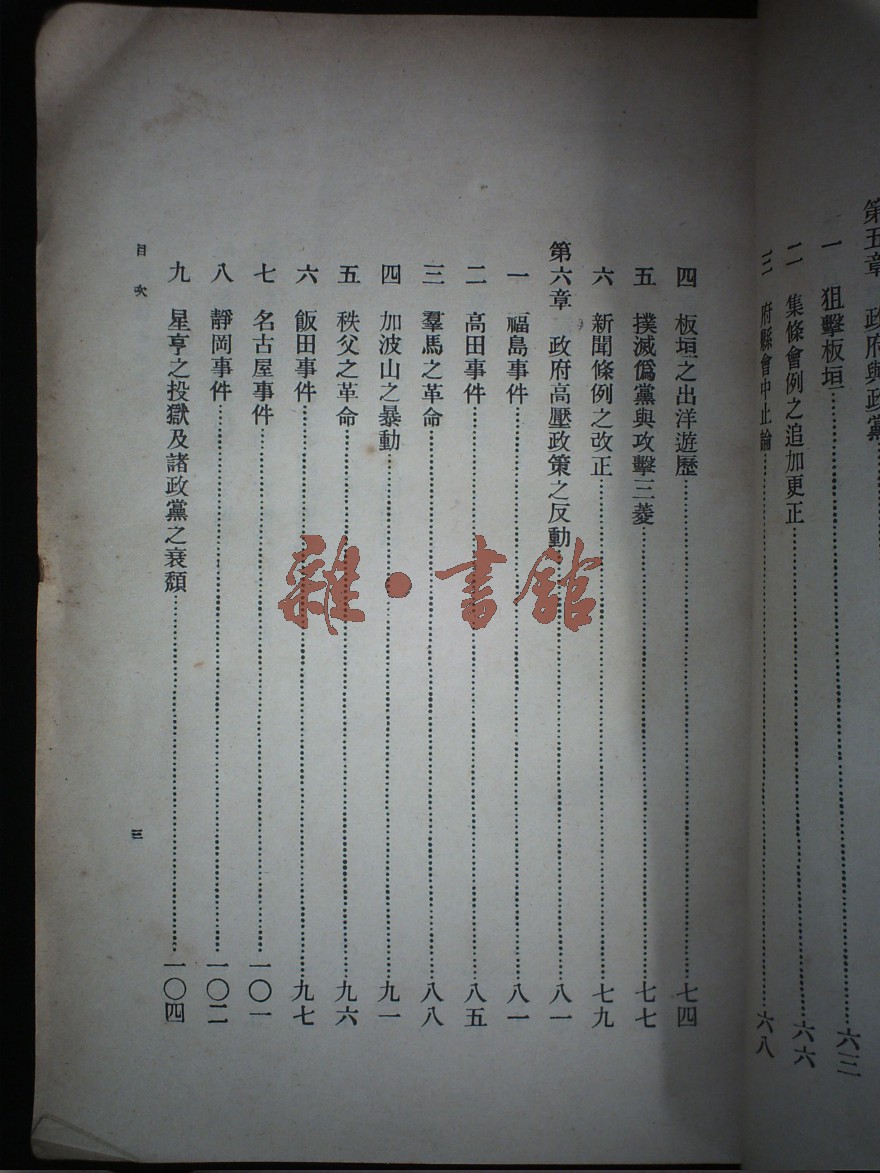 第五章 政府與政黨
一 狙擊板垣 六三
二 集條會例之追加更正 六六
三 府縣會中止論 六八
四 板垣之出洋遊歷 七四
五 撲滅僞黨與攻擊三菱 七七
六 新聞條例之改正 七九
第六章 政府高壓政策之反動 八一
一 福島事件 八一
二 高田事件 八五
三 羣馬之革命 八八
四 加波山之暴動 九一
五 秩父之革命 九六
六 飯田事件 九七
七 名古屋事件 一〇一
八 靜岡事件 一〇二
九 星亨之投獄及諸政黨之衰頹 一〇四
目次
三
雜·書館